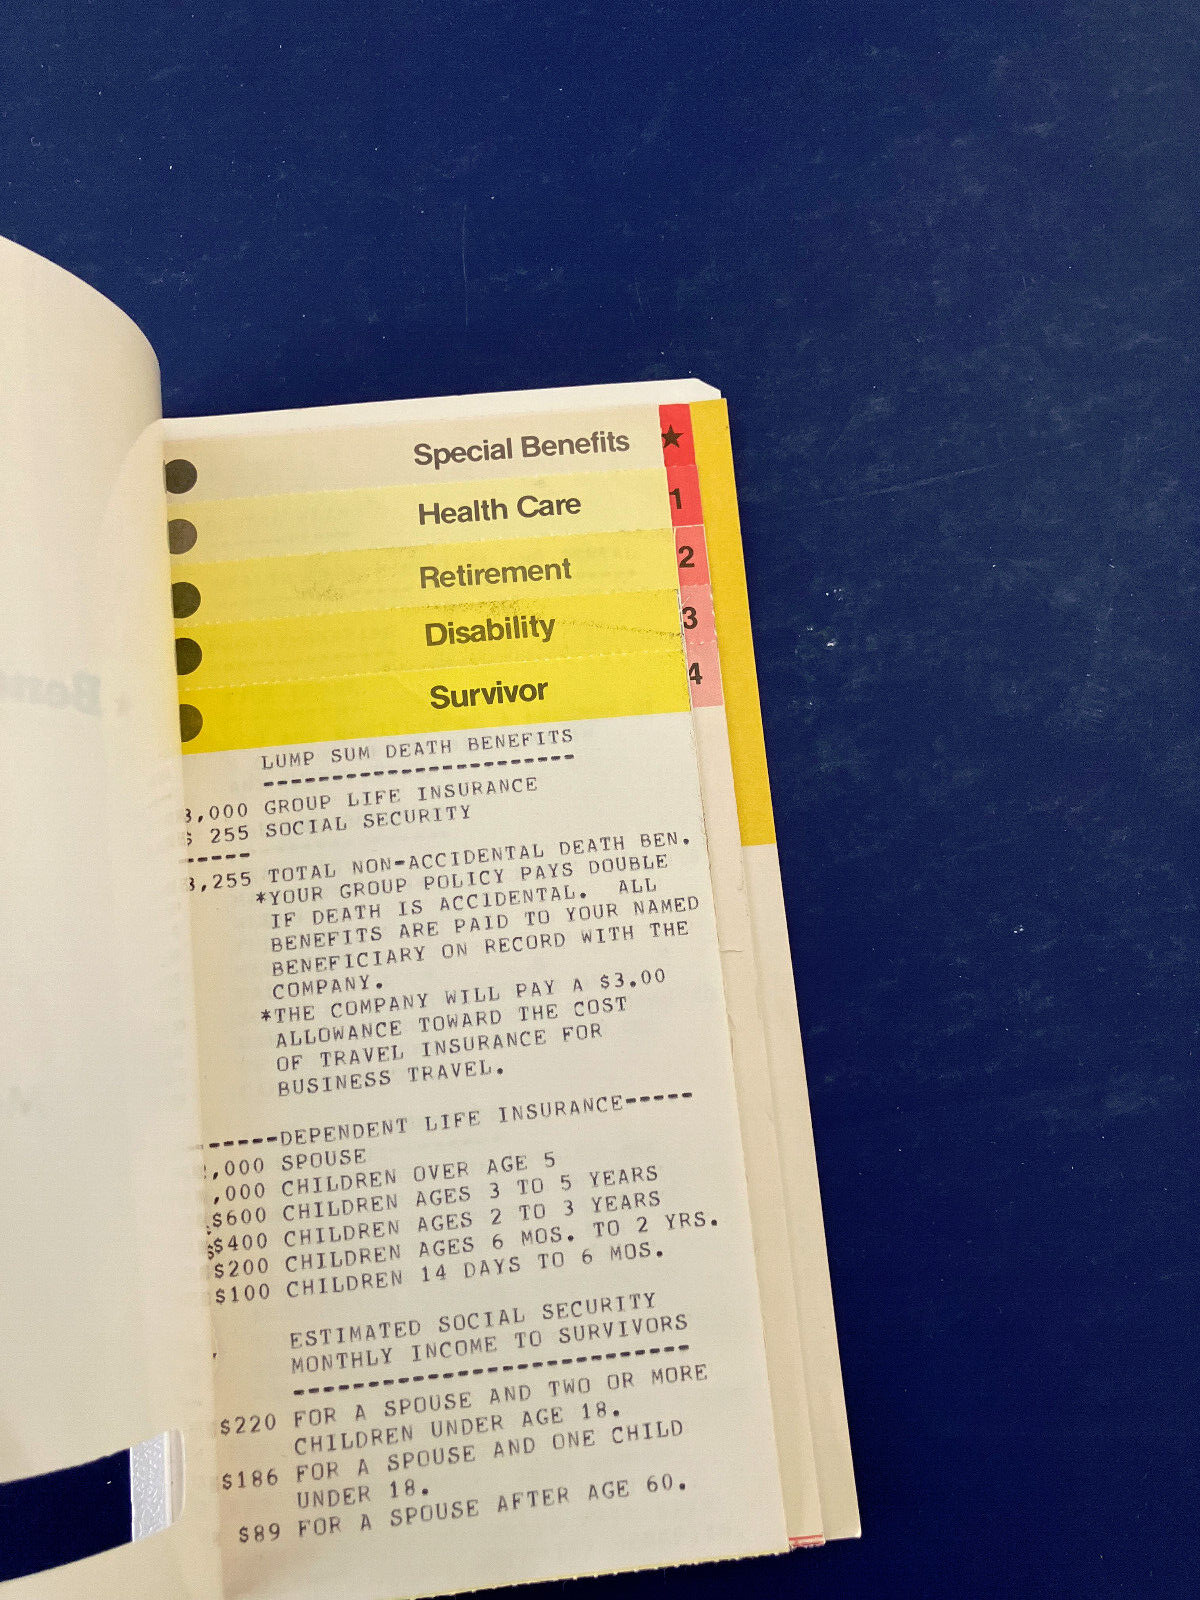 Special Benefits ★
Health Care 1
Retirement 2
Disability 3
Survivor 4
LUMP SUM DEATH BENEFITS
----------------------
,000 GROUP LIFE INSURANCE
$ 255 SOCIAL SECURITY
-----
,255 TOTAL NON-ACCIDENTAL DEATH BEN.
*YOUR GROUP POLICY PAYS DOUBLE
IF DEATH IS ACCIDENTAL. ALL
BENEFITS ARE PAID TO YOUR NAMED
BENEFICIARY ON RECORD WITH THE
COMPANY.
*THE COMPANY WILL PAY A $3.00
ALLOWANCE TOWARD THE COST
OF TRAVEL INSURANCE FOR
BUSINESS TRAVEL.
-----DEPENDENT LIFE INSURANCE-----
,000 SPOUSE
,000 CHILDREN OVER AGE 5
$600 CHILDREN AGES 3 TO 5 YEARS
$400 CHILDREN AGES 2 TO 3 YEARS
$200 CHILDREN AGES 6 MOS. TO 2 YRS.
$100 CHILDREN 14 DAYS TO 6 MOS.
ESTIMATED SOCIAL SECURITY
MONTHLY INCOME TO SURVIVORS
----------------------------
$220 FOR A SPOUSE AND TWO OR MORE
CHILDREN UNDER AGE 18.
$186 FOR A SPOUSE AND ONE CHILD
UNDER 18.
$89 FOR A SPOUSE AFTER AGE 60.